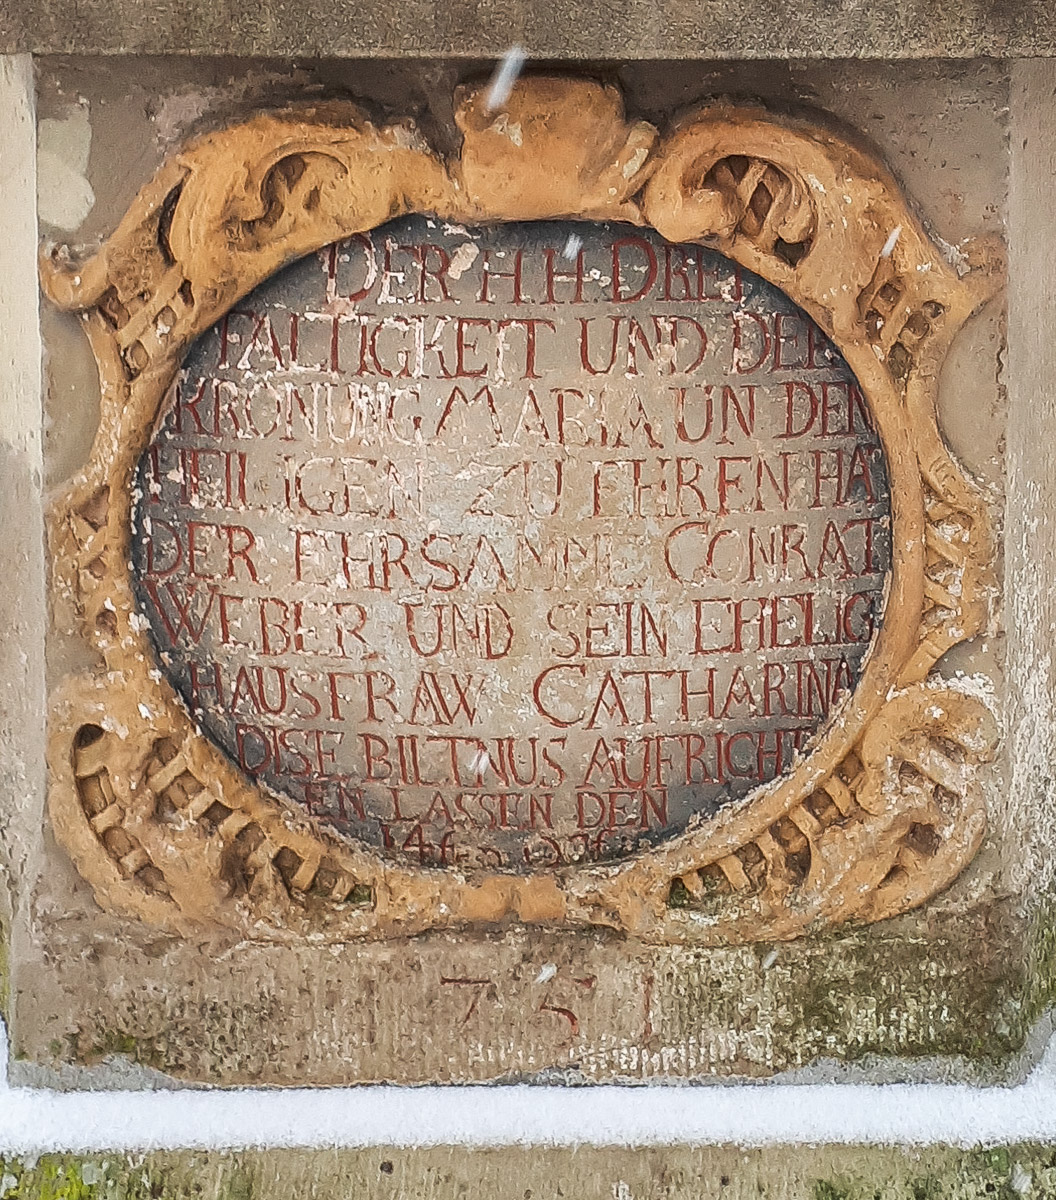 DER H H DREI
FALTIGKEIT UND DER
KRÖNUNG MARIA UN DEN
HEILIGEN ZU EHREN HAT
DER EHRSAMME CONRAT
WEBER UND SEIN EHELIG
HAUSFRAW CATHARINA
DISE BILTNUS AUFRICHT
EN LASSEN DEN
751